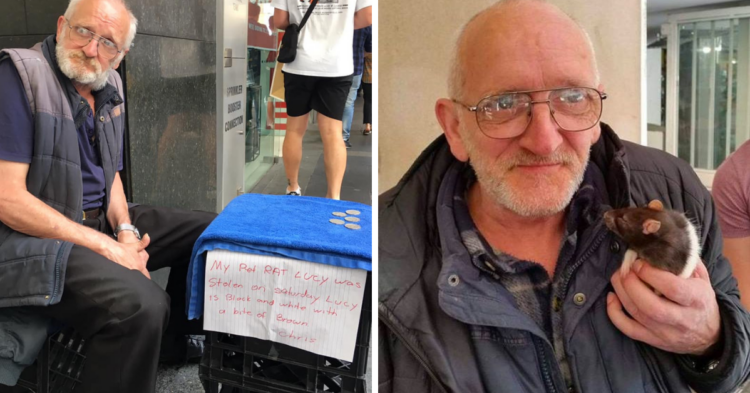 SPRINKLER
BOOSTER
CONNECTION
My Pet RAT LUCY was
Stolen on Saturday LUCY
is Black and white with
a bite of Brown
Chris